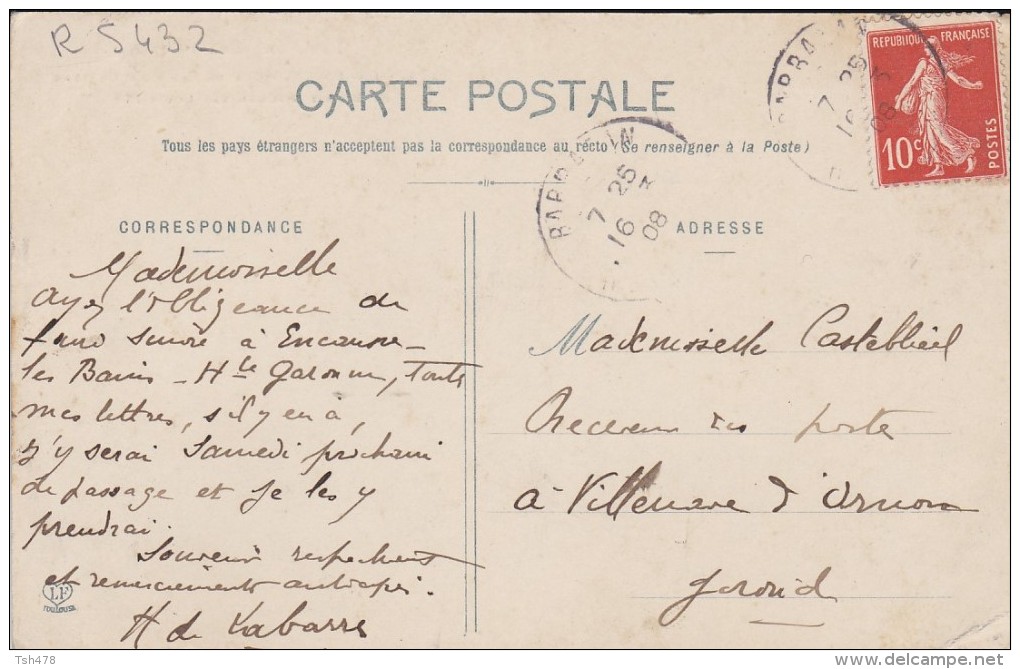 R 5432
CARTE POSTALE
Tous les pays étrangers n'acceptent pas la correspondance au recto (Se renseigner à la Poste)
REPUBLIQUE FRANÇAISE
10c
POSTES
7 25
16 08
BARBA
7 25
16 08
CORRESPONDANCE
Mademoiselle
ayez l'obligeance de
faire suivre à Encausse-
les Bains - Hte Garonne, toutes
mes lettres, s'il y en a,
j'y serai samedi prochain
de passage et je les y
prendrai.
Souvenir respectueux
et remerciements anticipés.
H de Labarre
LF
TOULOUSE
ADRESSE
Mademoiselle Castebbieil
Receveuse des poste
à Villenave d'Ornon
Gironde
Tsh478
delcampe.net